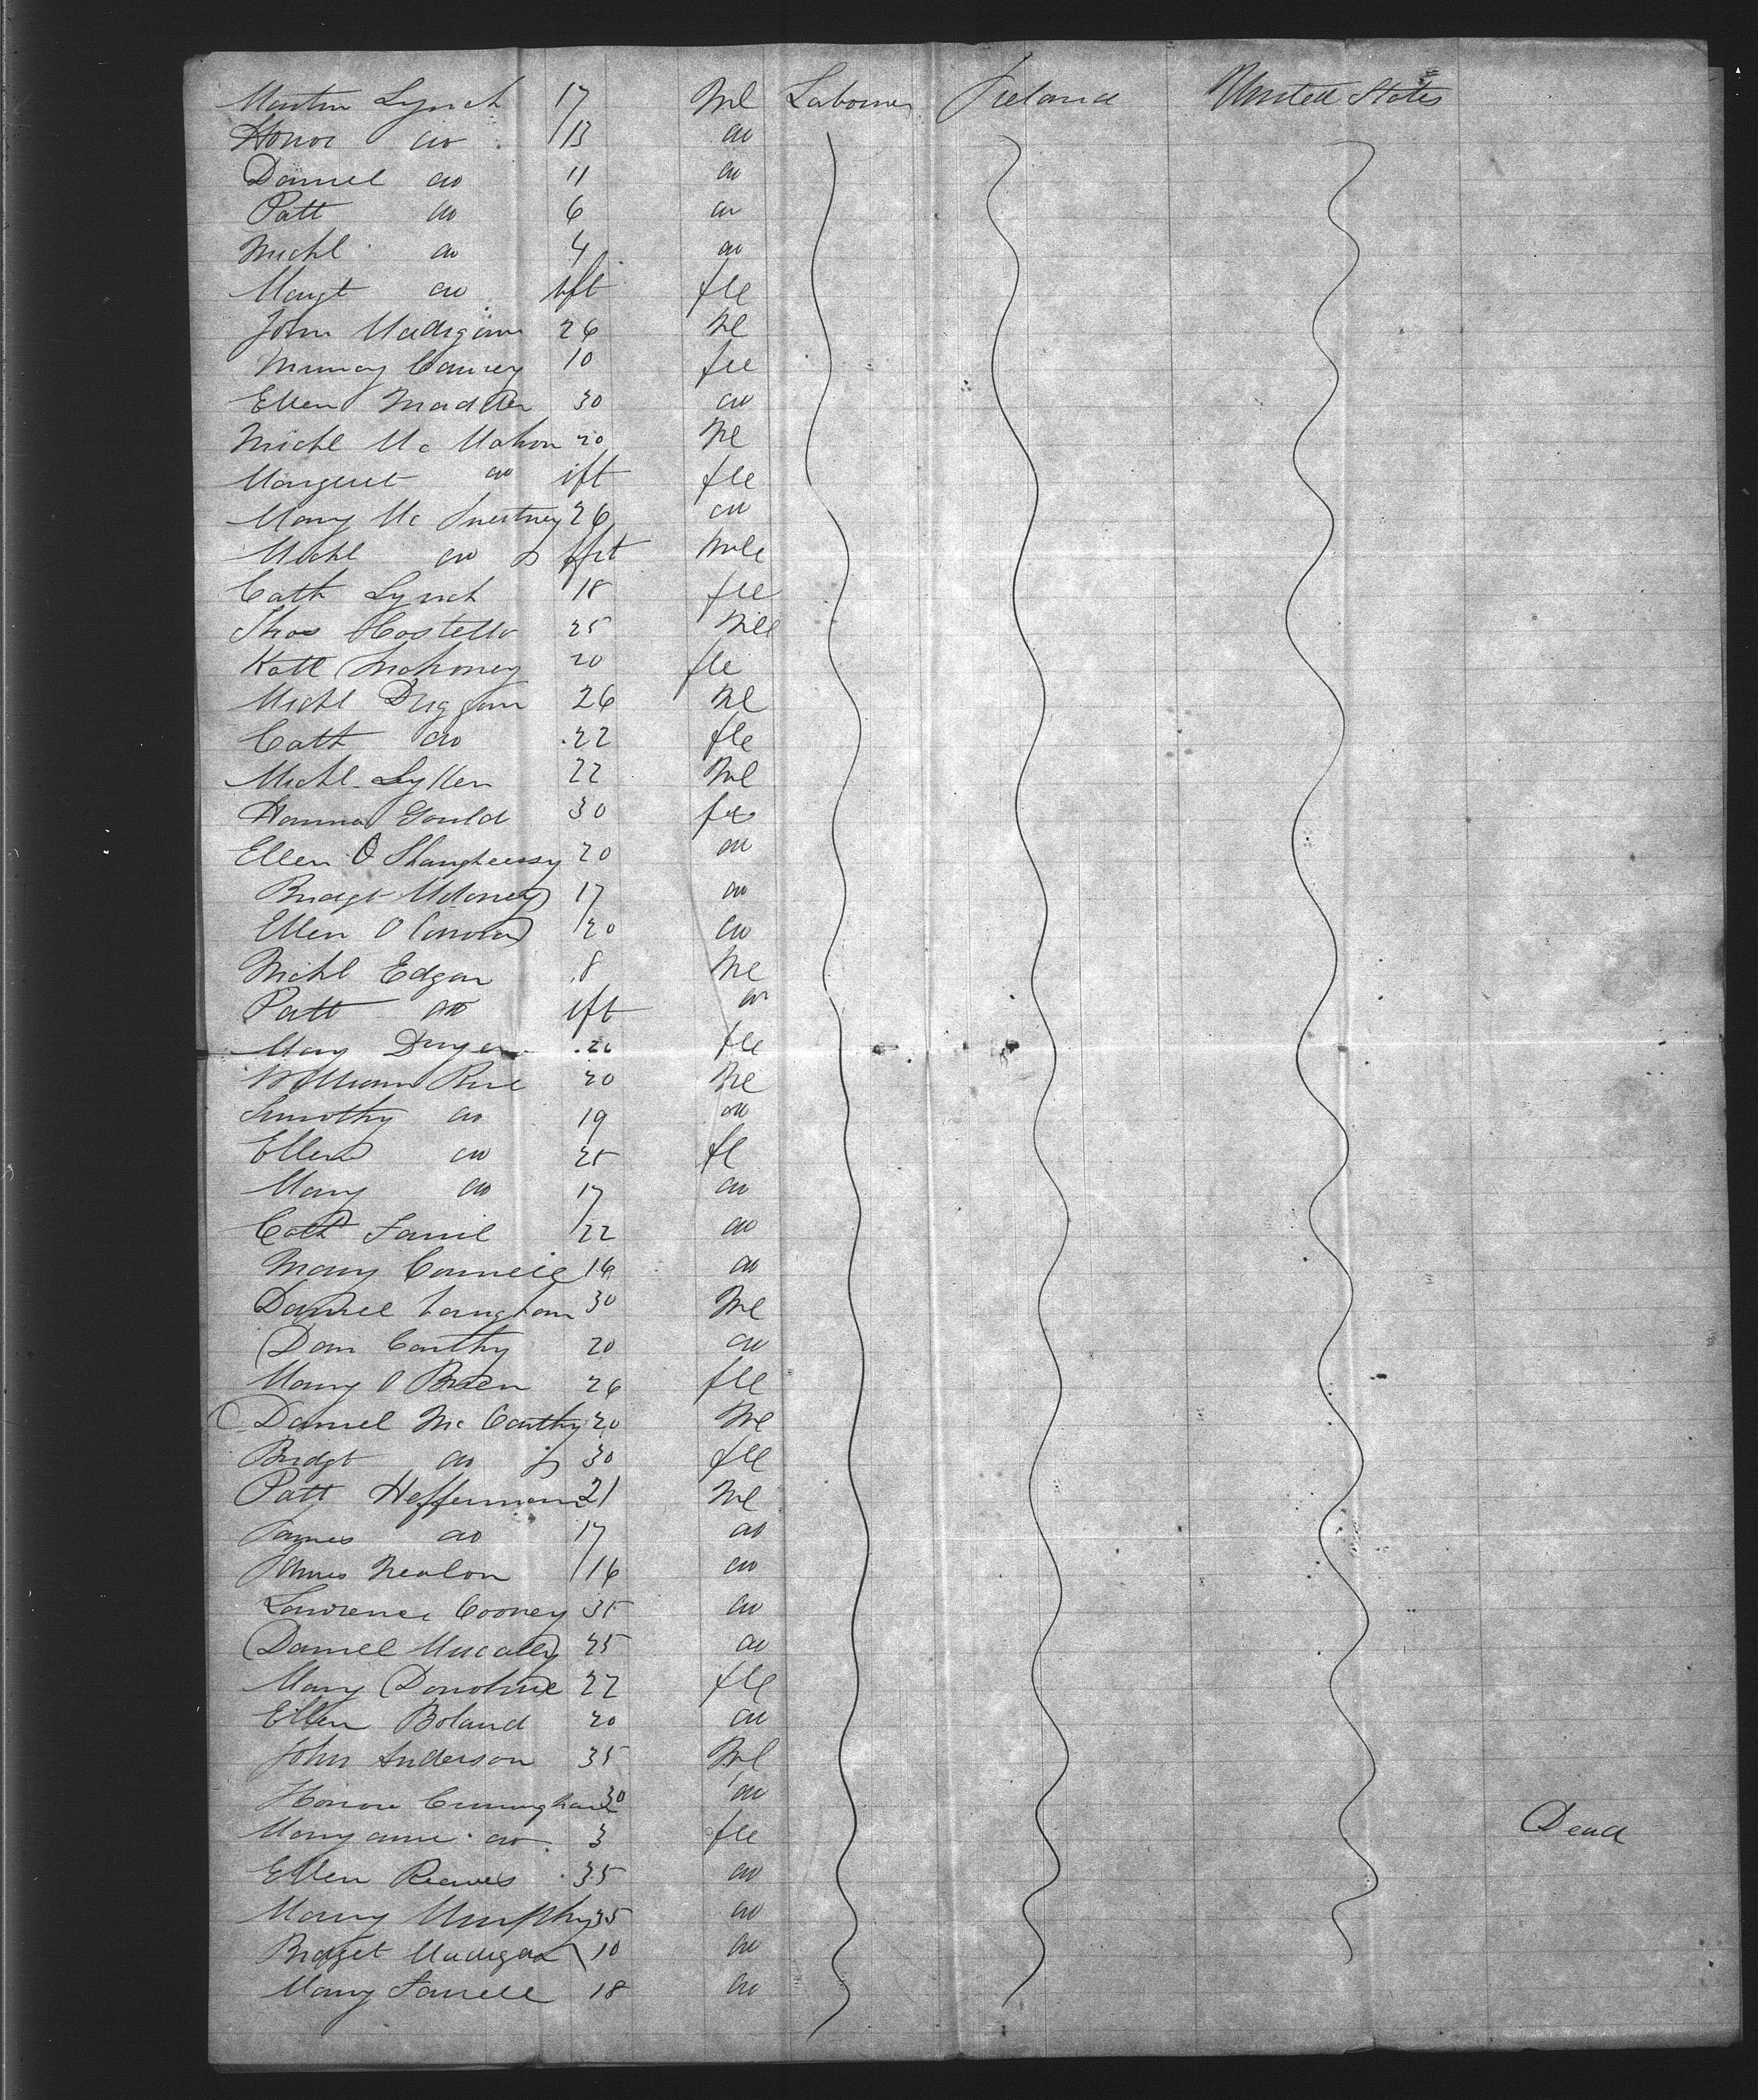 Martin Lynch 17 Ml Labourer Ireland United States
Honor do 13 do
Daniel do 11 do
Patt do 6 do
Michl do 4 do
Margt do ift fle
John Madigan 26 Ml
10 fle
Ellen Madden 30 do
Michl Mc Mahon 20 Ml
Margaret do ift fle
Mary Mc 26 do
Michl do ift Mle
Cath Lynch 18 fle
Thos Costello 25 Mle
Kate Mahoney 20 fle
Michl Duggan 26 Ml
Cath do 22 fle
Michl 22 Ml
Hanna Gould 30 fe
Ellen O Shaughnessy 20 do
Bridgt Moloney 17 do
Ellen O Connor 20 do
Michl Edgar 8 Ml
Patt do ift do
Mary Dwyer fle
William 20 Ml
Timothy do 19 do
Ellen do 25 fl
Mary do 17 do
Cath 22 do
Mary 16 do
Daniel 30 Ml
Dan Carthy 20 do
Mary O Brien 26 fle
Daniel Mc Carthy 20 Ml
Bridgt do 30 fle
Patt Heffernan 21 Ml
James do 17 do
James Nealon 16 do
Lawrence Cooney 35 do
Daniel 25 do
Mary Donohue 22 fle
Ellen Boland 20 do
John Anderson 35 Ml
Honora Cunningham 30 do
Mary anne do 3 fle Dead
Ellen Reeves 35 do
Mary Murphy 35 do
Bridget Madigan 10 do
Mary 18 do